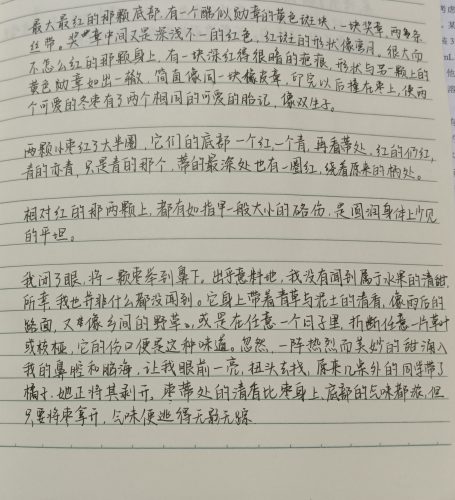 最大最红的那颗底部,有一个酷似勋章的黄色斑块,一块奖章,两条
丝带。奖章中间又是深浅不一的红色,红斑的形状像弯月。很大而
不怎么红的那颗身上,有一块深红得很暗的疤痕,形状与另一颗上的
黄色勋章如出一辙,简直像同一块橡皮章,印完以后撞在枣上,使两
个可爱的冬枣有了两个相同的可爱的胎记,像双生子。
两颗小枣红了大半圈,它们的底部一个红,一个青,再看蒂处,红的仍红,
青的亦青,只是青的那个,蒂的最深处也有一圈红,绕着原来的柄处。
相对红的那两颗上,都有如指甲一般大小的硌伤,是圆润身体上少见
的平坦。
我闭了眼,将一颗枣举到鼻下。出乎意料地,我没有闻到属于水果的清甜,
所幸,我也并非什么都没闻到。它身上带着青草与泥土的清香,像雨后的
路面,又像乡间的野草。或是在任意一个日子里,折断任意一片草叶
或枝桠,它的伤口便是这种味道。忽然,一阵热烈而美妙的甜涌入
我的鼻腔和脑海,让我眼前一亮,扭头去找,原来几条外的同学带了
橘子,她正将其剥开。枣蒂处的清香比枣身上、底部的气味都浓,但
只要将枣拿开,气味便逃得无影无踪